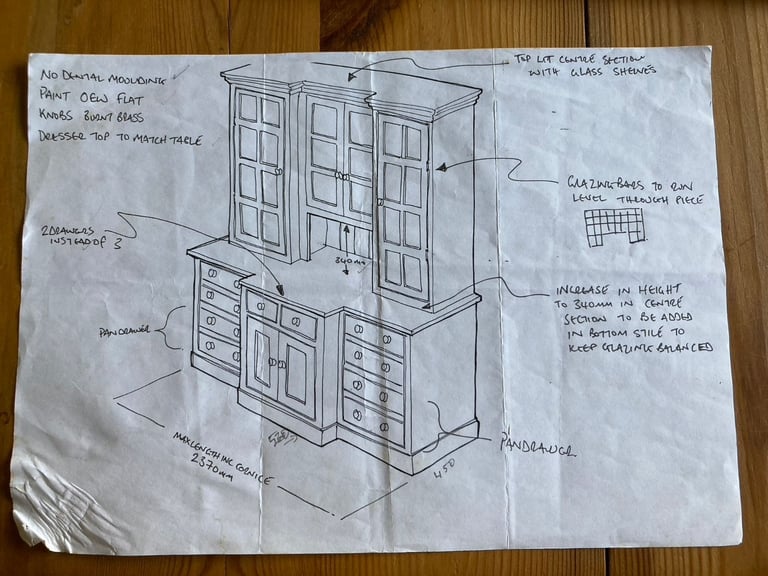 NO DENTAL MOULDING
PAINT OEW FLAT
KNOBS BURNT BRASS
DRESSER TOP TO MATCH TABLE
TOP LIT CENTRE SECTION
WITH GLASS SHELVES
GLAZING BARS TO RUN
LEVEL THROUGH PIECE
2 DRAWERS
INSTEAD OF 3
340mm
INCREASE IN HEIGHT
TO 340MM IN CENTRE
SECTION TO BE ADDED
IN BOTTOM STILE TO
KEEP GLAZING BALANCED
PAN DRAWER
PAN DRAWER
MAX LENGTH INC CORNICE
2370mm
450